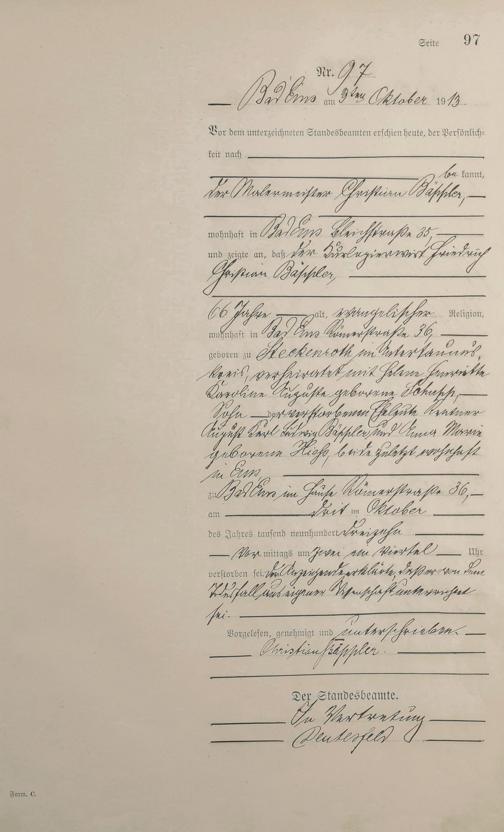 Seite 97
Nr. 97
Bad Ems am 9ten Oktober 1913
Vor dem unterzeichneten Standesbeamten erschien heute, der Persönlich-
keit nach
be kannt,
der Malermeister Christian Bäppler,
wohnhaft in Bad Ems Bleichstraße 35,
und zeigte an, daß der Kurlogierwirt Friedrich
Christian Bäppler,
66 Jahre alt, evangelischer Religion,
wohnhaft in Bad Ems Römerstraße 36,
geboren zu Steckenroth im Untertaunus-
kreis, verheiratet mit Helene Henriette
Karoline Auguste geborene
Sohn der verstorbenen Eheleute Rentner
August Karl Ludwig Bäppler und Anna Maria
geborene beide zuletzt wohnhaft
in Ems,
zu Bad Ems im Hause Römerstraße 36,
am Oktober
des Jahres tausend neunhundert dreizehn
Vor mittags um zwei ein Viertel Uhr
verstorben sei. Der Anzeigende erklärte, daß er von dem
Todesfall aus eigener Wissenschaft unterrichtet
sei.
Vorgelesen, genehmigt und unterschrieben.
Christian Bäppler.
Der Standesbeamte.
In Vertretung
Form. C.